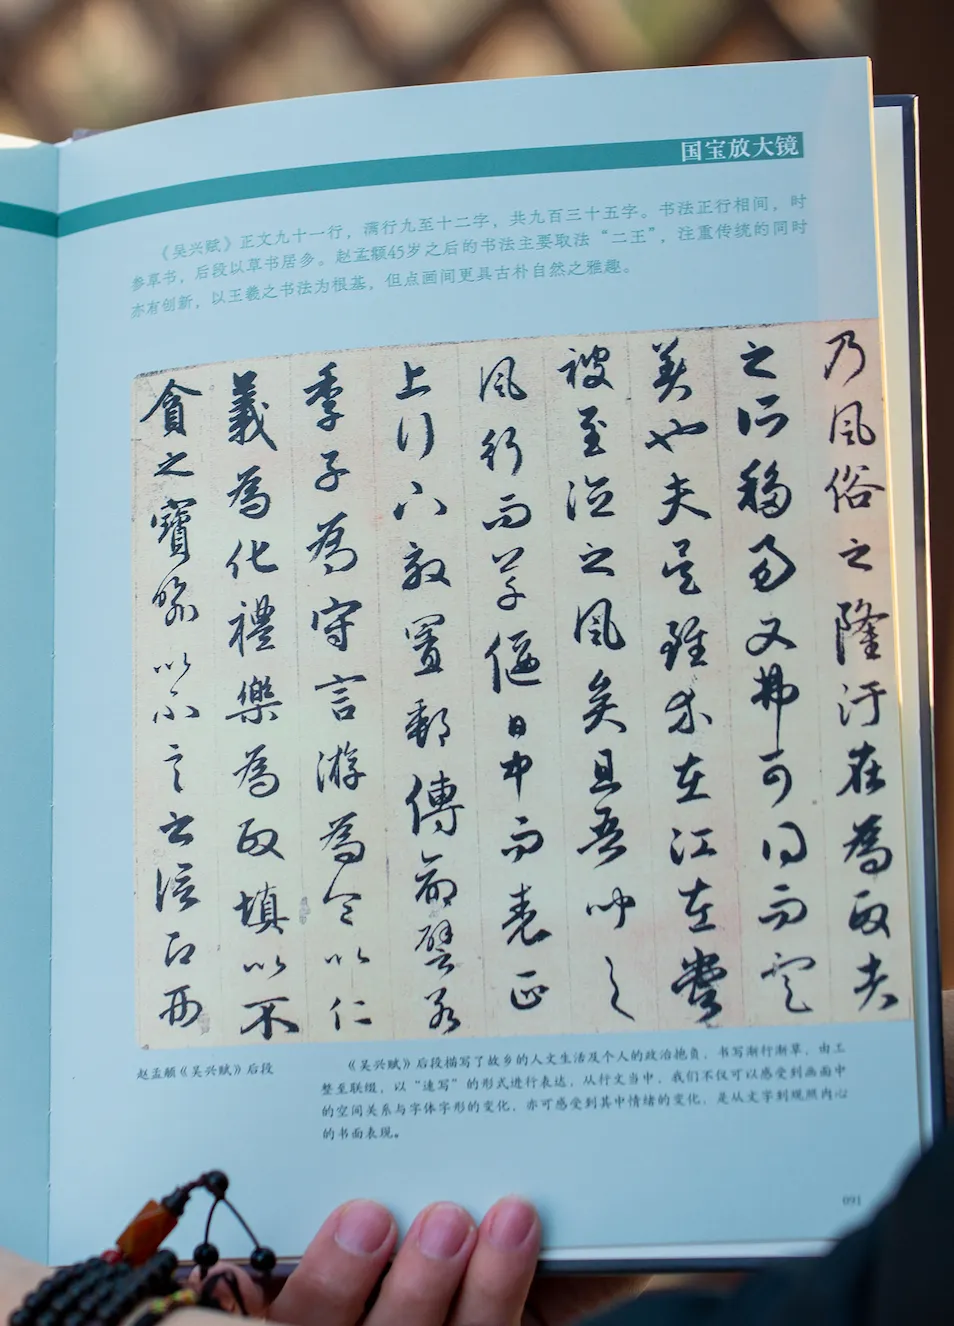 国宝放大镜
《吴兴赋》正文九十一行，满行九至十二字，共九百三十五字。书法正行相间，时
参草书，后段以草书居多。赵孟頫45岁之后的书法主要取法“二王”，注重传统的同时
亦有创新，以王羲之书法为根基，但点画间更具古朴自然之雅趣。
乃風俗之隆汙在為政夫
之所移易又弗可同而
美也夫吴雖在江左嘗
被至德之風矣且吾聞之
風行而草偃日中而表正
上行下效置郵傳命譬若
季子為守言游為令以仁
義為化禮樂為政填以不
貪之寶
赵孟頫《吴兴赋》后段
《吴兴赋》后段描写了故乡的人文生活及个人的政治抱负，书写渐行渐草，由工
整至联缀，以“速写”的形式进行表达，从行文当中，我们不仅可以感受到画面中
的空间关系与字体字形的变化，亦可感受到其中情绪的变化，是从文字到观照内心
的书面表现。
091